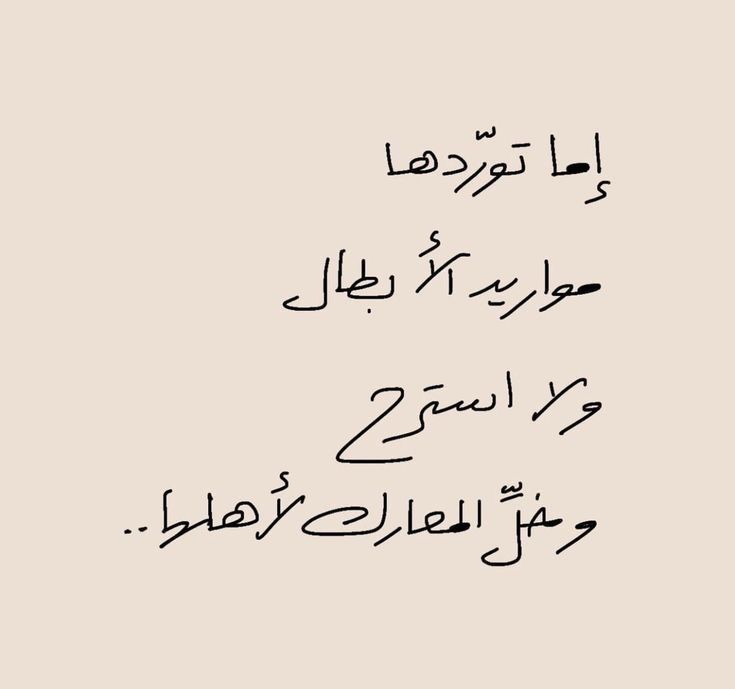 إما تورّدها
مواريد الأبطال
ولا استرح
وخلِّ المعارك لأهلها..